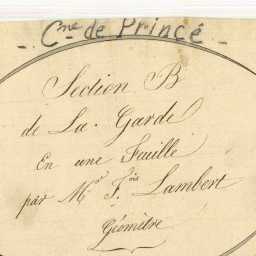 - Cne de Princé -
Section B
de La Garde
En une Feuille
par Mr. Fois Lambert
Géomètre